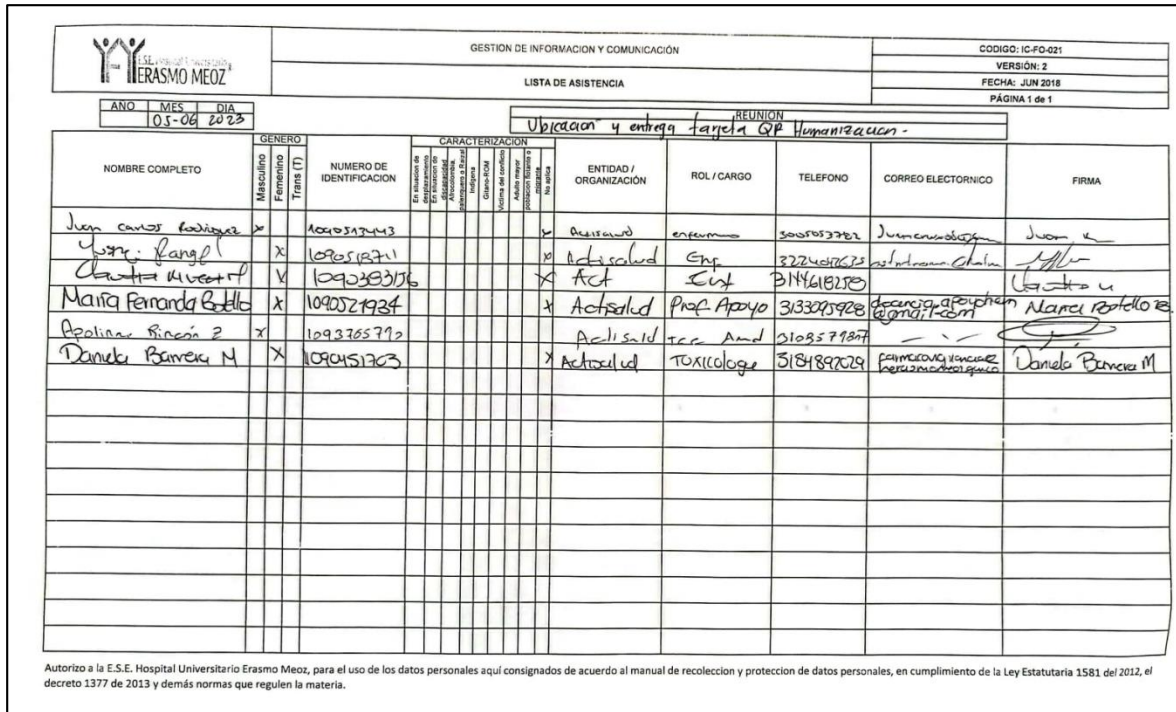 E.S.E. HOSPITAL UNIVERSITARIO
ERASMO MEOZ
GESTION DE INFORMACION Y COMUNICACIÓN
LISTA DE ASISTENCIA
CODIGO: IC-FO-021
VERSIÓN: 2
FECHA: JUN 2018
PÁGINA 1 de 1
AÑO MES DIA
05-06 2023
REUNION
Ubicacion y entrega tarjeta QR Humanizacion.
NOMBRE COMPLETO
GENERO
Masculino
Femenino
Trans (T)
NUMERO DE IDENTIFICACION
CARACTERIZACION
En situacion de desplazamiento
En situacion de discapacidad
Afrocolombia, palenquero o Raizal
Indigena
Gitano-ROM
Victima del conflicto
Adulto mayor
poblacion flotante o migrante
No aplica
ENTIDAD / ORGANIZACIÓN
ROL / CARGO
TELEFONO
CORREO ELECTORNICO
FIRMA
Juan carlos Rodriguez x 1090513443 x Actisalud enfermero Juan
Rangel x x Actisalud Enf
x 1090393156 x Act Enf 3144618250
Maria Fernanda Botello x 1090521934 x Actisalud Prof. Apoyo 3133095928 @gmail.com Maria Botello
Apolinar Rincón x Actisalud
Daniela Barrera M x 1090451703 x Actisalud Toxicologa 3184892029 Daniela Barrera M
Autorizo a la E.S.E. Hospital Universitario Erasmo Meoz, para el uso de los datos personales aquí consignados de acuerdo al manual de recoleccion y proteccion de datos personales, en cumplimiento de la Ley Estatutaria 1581 del 2012, el
decreto 1377 de 2013 y demás normas que regulen la materia.